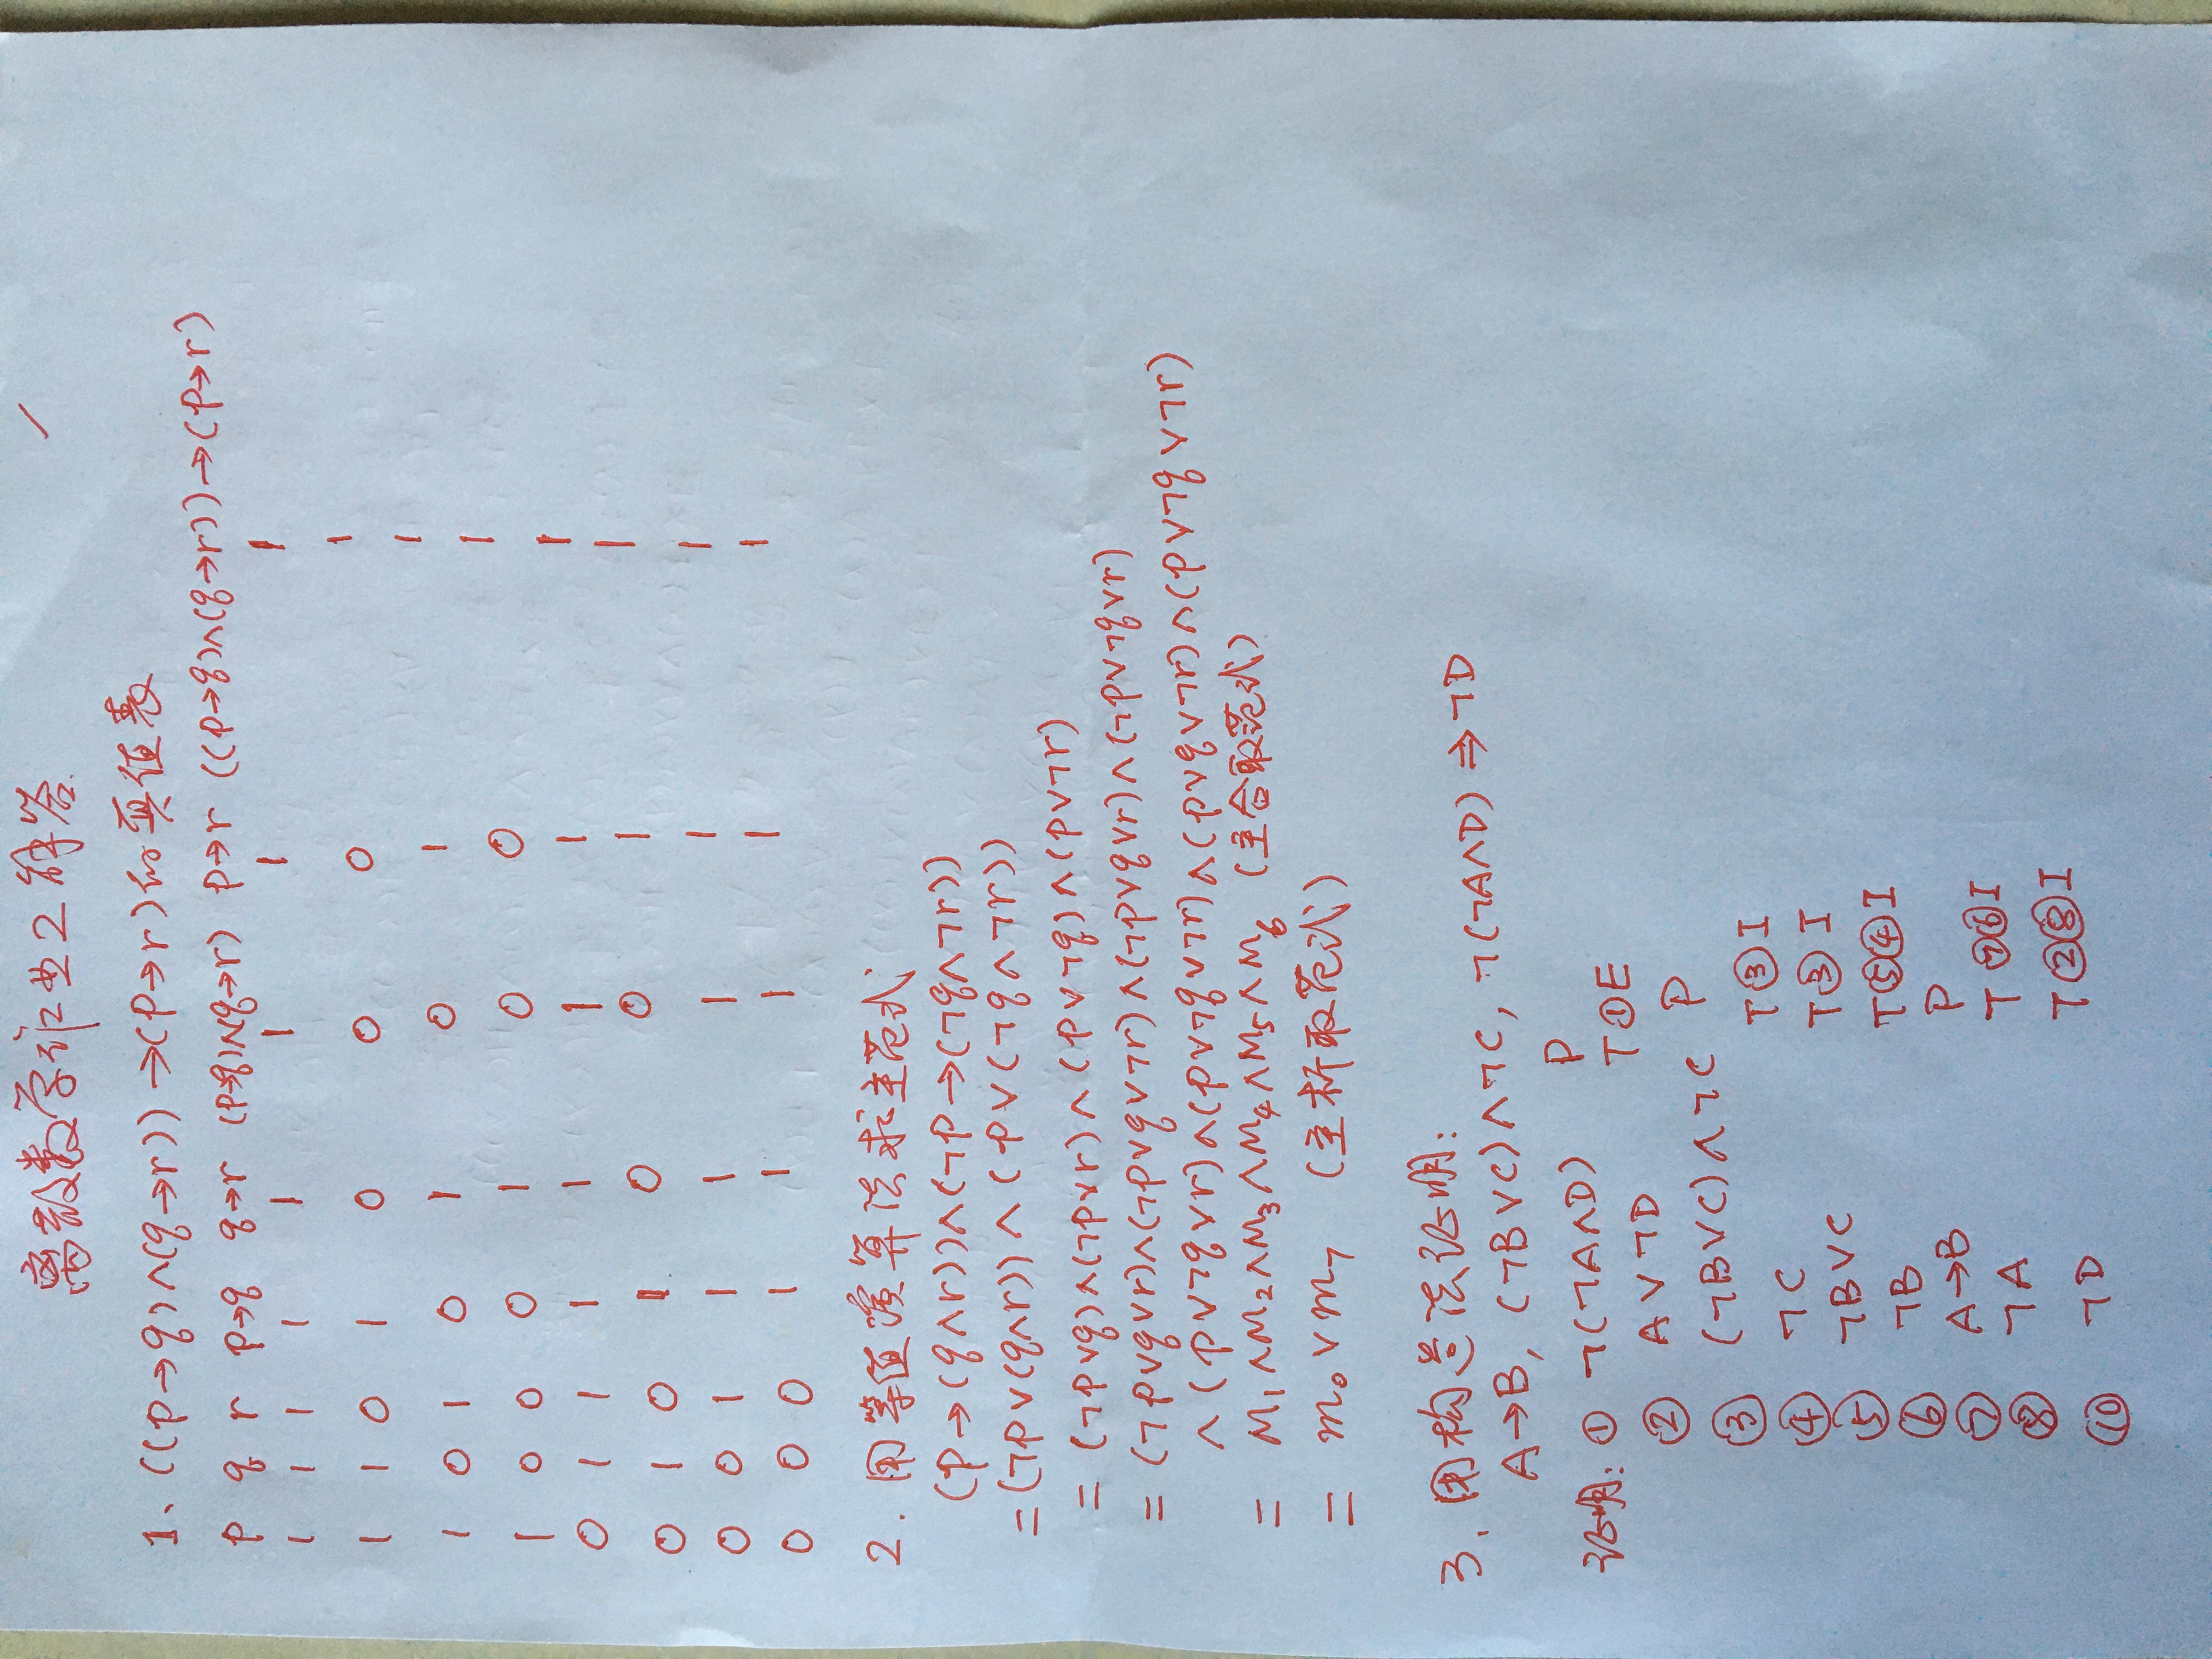 离散数学作业2解答
1、((p→q)∧(q→r))→(p→r)的真值表
p q r p→q q→r (p→q)∧(q→r) p→r ((p→q)∧(q→r))→(p→r)
1 1 1 1 1 1 1 1
1 1 0 1 0 0 0 1
1 0 1 0 1 0 1 1
1 0 0 0 1 0 0 1
0 1 1 1 1 1 1 1
0 1 0 1 0 0 1 1
0 0 1 1 1 1 1 1
0 0 0 1 1 1 1 1
2. 用等值演算法求主范式
(p→(q∧r))∧(¬p→(¬q∧¬r))
=(¬p∨(q∧r))∧(p∨(¬q∧¬r))
=(¬p∨q)∧(¬p∨r)∧(p∨¬q)∧(p∨¬r)
=(¬p∨q∨r)∧(¬p∨q∨¬r)∧(¬p∨q∨r)∧(¬p∨¬q∨r)
∧(p∨¬q∨r)∧(p∨¬q∨¬r)∧(p∨q∨¬r)∧(p∨¬q∨¬r)
= M₁∧M₂∧M₃∧M₄∧M₅∧M₆ (主合取范式)
= m₀∨m₇ (主析取范式)
3、用构造法证明:
A→B, (¬B∨C)∧¬C, ¬(¬A∧D)⇒¬D
证明: ① ¬(¬A∧D) P
② A∨¬D T①E
③ (¬B∨C)∧¬C P
④ ¬C T③I
⑤ ¬B∨C T③I
⑥ ¬B T⑤④I
⑦ A→B P
⑧ ¬A T⑦⑥I
⑩ ¬D T②⑧I